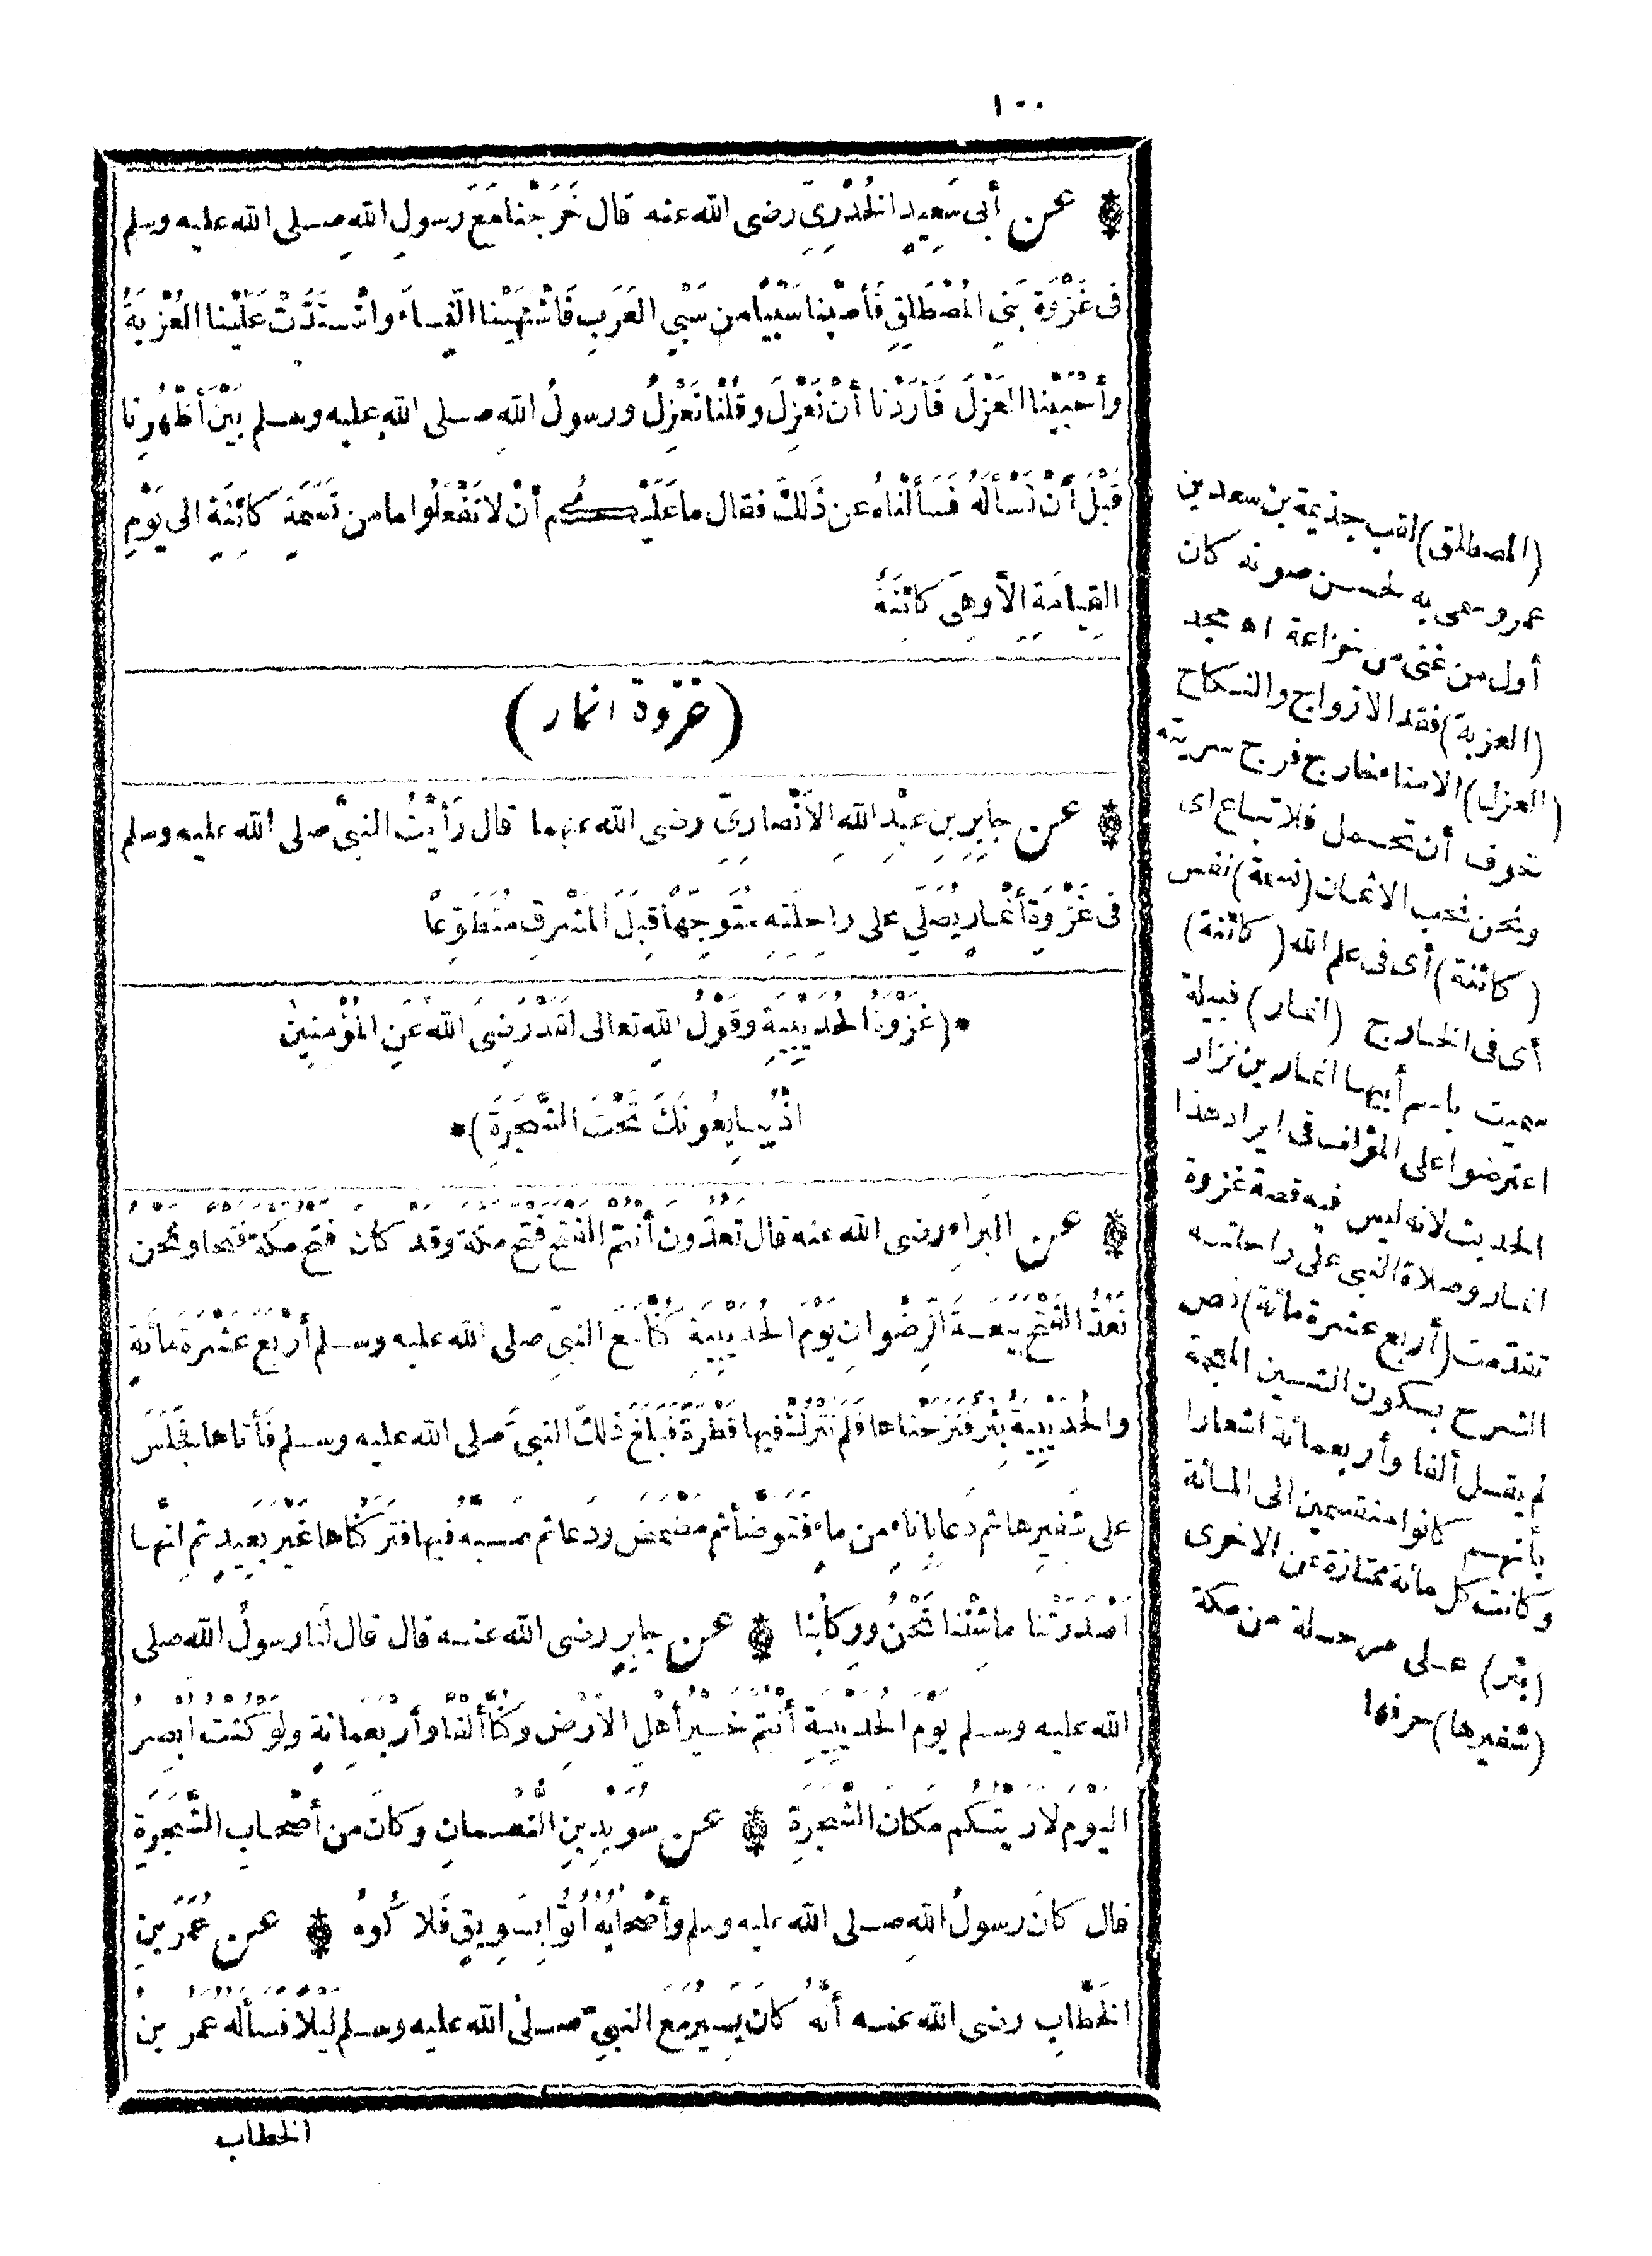 ١٠٠
عن أبى سَعِيدٍ الخُدْرِىِّ رضى الله عنه قال خَرَجْنا مَعَ رَسولِ اللهِ صلى الله عليه وسلم
فى غَزْوَةِ بَنِى المُصْطَلِقِ فَأَصَبْنا سَبْيًا من سَبْىِ العَرَبِ فَاشْتَهَيْنا النِّساءَ واشْتَدَّتْ عَلَيْنا العُزْبَةُ
وأَحْبَبْنا العَزْلَ فَأَرَدْنا أنْ نَعْزِلَ وقُلْنا نَعْزِلُ ورسولُ اللهِ صلى الله عليه وسلم بَيْنَ أظْهُرِنا
قَبْلَ أنْ نَسْأَلَهُ فَسَأَلْناهُ عن ذَلِكَ فقال ما عَلَيْكُم أنْ لا تَفْعَلُوا ما من نَسَمَةٍ كائِنَةٍ الى يَوْمِ
القِيامَةِ الّا وهِىَ كائِنَةٌ
(غزوة انمار)
عن جابِرِ بنِ عبْدِ اللهِ الأَنْصارِىِّ رضى الله عنهما قال رَأَيْتُ النبىَّ صلى الله عليه وسلم
فى غَزْوَةِ أنْمارٍ يُصَلِّى على راحِلَتِهِ مُتَوَجِّهًا قِبَلَ المَشْرِقِ مُتَطَوِّعًا
*(غَزْوَةُ الحُدَيْبِيَةِ وقَوْلُ اللهِ تعالى لَقَدْ رَضِىَ اللهُ عَنِ المُؤْمِنِينَ
اذْ يُبايِعُونَكَ تَحْتَ الشَّجَرَةِ)*
عن البَراءِ رضى الله عنه قال تَعُدُّونَ أنْتُم الفَتْحَ فَتْحَ مَكَّةَ وقد كانَ فَتْحُ مَكَّةَ فَتْحًا ونَحْنُ
نَعُدُّ الفَتْحَ بَيْعَةَ الرِّضْوانِ يَوْمَ الحُدَيْبِيَةِ كُنّا مَعَ النبىِّ صلى الله عليه وسلم أرْبَعَ عَشْرَةَ مائَةٍ
والحُدَيْبِيَةُ بِئْرٌ فَنَزَحْناها فَلَمْ نَتْرُكْ فيها قَطْرَةً فَبَلَغَ ذَلِكَ النبىَّ صلى الله عليه وسلم فَأَتاها فجَلَسَ
على شَفِيرِها ثم دَعا بِاناءٍ من ماءٍ فَتَوَضَّأَ ثم مَضْمَضَ ودَعا ثم صَبَّهُ فيها فتَرَكْناها غَيْرَ بَعِيدٍ ثم انّها
أصْدَرَتْنا ما شِئْنا نَحْنُ ورِكابُنا عن جابِرٍ رضى الله عنه قال قال لَنا رسولُ الله صلى
الله عليه وسلم يَوْمَ الحُدَيْبِيَةِ أنْتُم خَيْرُ أهْلِ الأَرْضِ وكُنّا ألْفًا وأرْبَعَمِائةٍ ولَوْ كُنْتُ أُبْصِرُ
اليَوْمَ لَأَرَيْتُكُم مَكانَ الشَّجَرَةِ عن سُوَيْدِ بنِ النُّعْمانِ وكانَ من أصْحابِ الشَّجَرَةِ
قال كانَ رسولُ اللهِ صلى الله عليه وسلم وأصْحابُه أُتُوا بِسَوِيقٍ فَلاكُوهُ عن عُمَرَ بنِ
الخَطّابِ رضى الله عنه أنّهُ كانَ يَسِيرُ مَعَ النبىِّ صلى الله عليه وسلم لَيْلًا فَسَأَلَهُ عُمَرُ بنُ
الخطاب
(المصطلق) لقب جذيمة بن سعد بن
عمرو سمى به لحسن صوته كان
أول من غنى من خزاعة اه مجد
(العزبة) فقد الازواج والنكاح
(العزل) الامناء خارج فرج سريته
خوف أن تحمل فلا تباع اى
ونحن نحب الاثمان (نسمة) نفس
(كائنة) أى فى علم الله (كائنة)
أى فى الخارج (انمار) قبيلة
سميت باسم أبيها انمار بن نزار
اعترضوا على المؤلف فى ايراد هذا
الحديث لانه ليس فيه قصة غزوة
انمار وصلاة النبى على راحلته
تقدّمت (أربع عشرة مائة) نص
الشرح بسكون الشين المعجمة
لم يقل ألفا وأربعمائة اشعارا
بأنهم كانوا منقسمين الى المائة
وكانت كل مائة ممتازة عن الاخرى
(بئر) على مرحلة من مكة
(شفيرها) حرفها